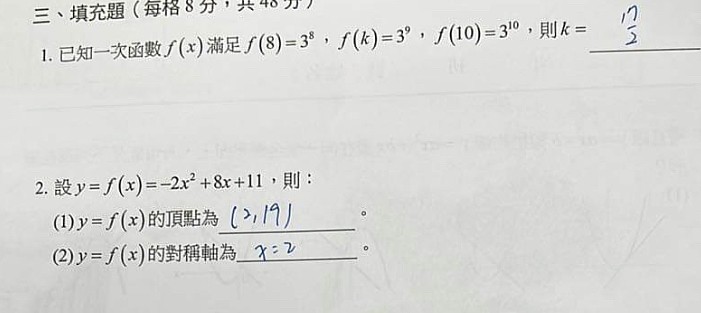 三、填充題（每格8分，共48分）
1. 已知一次函數 f(x) 滿足 f(8)=3⁸，f(k)=3⁹，f(10)=3¹⁰，則 k = 17/2
2. 設 y=f(x)=-2x²+8x+11，則：
(1) y=f(x) 的頂點為 (2,19)。
(2) y=f(x) 的對稱軸為 x=2。